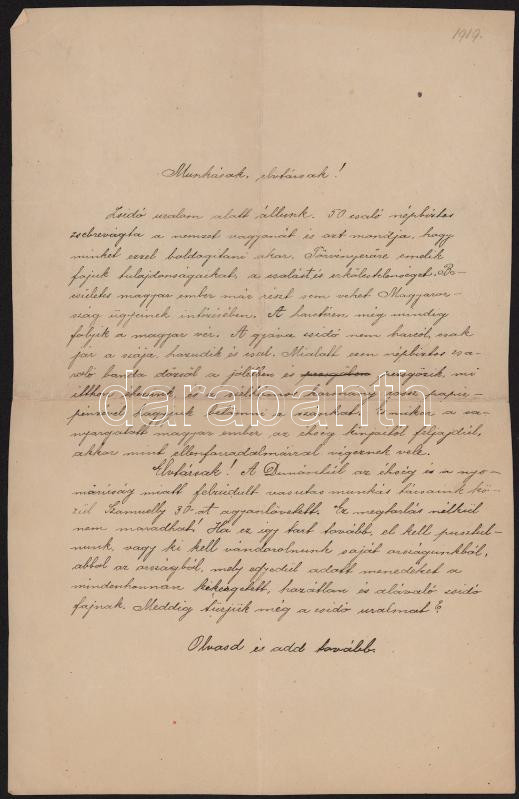 1919.
Munkásak, elvtársak!
Zsidó uralom alatt állunk. 50 csaló népbiztos
zsebrevágta a nemzet vagyonát és azt mondja, hogy
minket ezzel boldogítani akar. Törvényerőre emelik
fajuk tulajdonságaikat, a csalást, és erkölcstelenséget. Be-
csületes magyar ember már részt sem vehet Magyaror-
szág ügyeinek intézésében. A harctéren még mindig
folyik a magyar vér. A gyáva zsidó nem harcol, csak
jár a szája, hazudik és csal. Mialatt ezen népbiztos csa-
ló banda dőzsöl a jólétben és rengőzik, mi
itthon éhezünk és a
pénzzel hagyjuk betömni a szánkat. S mikor a sa-
nyargatott magyar ember az éhség kínjaitól feljajdúl,
akkor mint ellenforradalmárral végeznek vele.
Elvtársak! A Dunántúl az éhség és a nyo-
morúság miatt fellázadt vasutas munkás társaink kö-
zül Szamuelly 30-at agyonlövetett. Ez megtorlás nélkül
nem maradhat! Ha ez így tart tovább, el kell pusztul-
nunk, vagy ki kell vándorolnunk saját országunkból,
abból az országból, mely egyedül adott menedéket a
mindenhonnan kikergetett, hazátlan és alávaló zsidó
fajnak. Meddig tűrjük még a zsidó uralmat?
Olvasd és add tovább.
darabanth